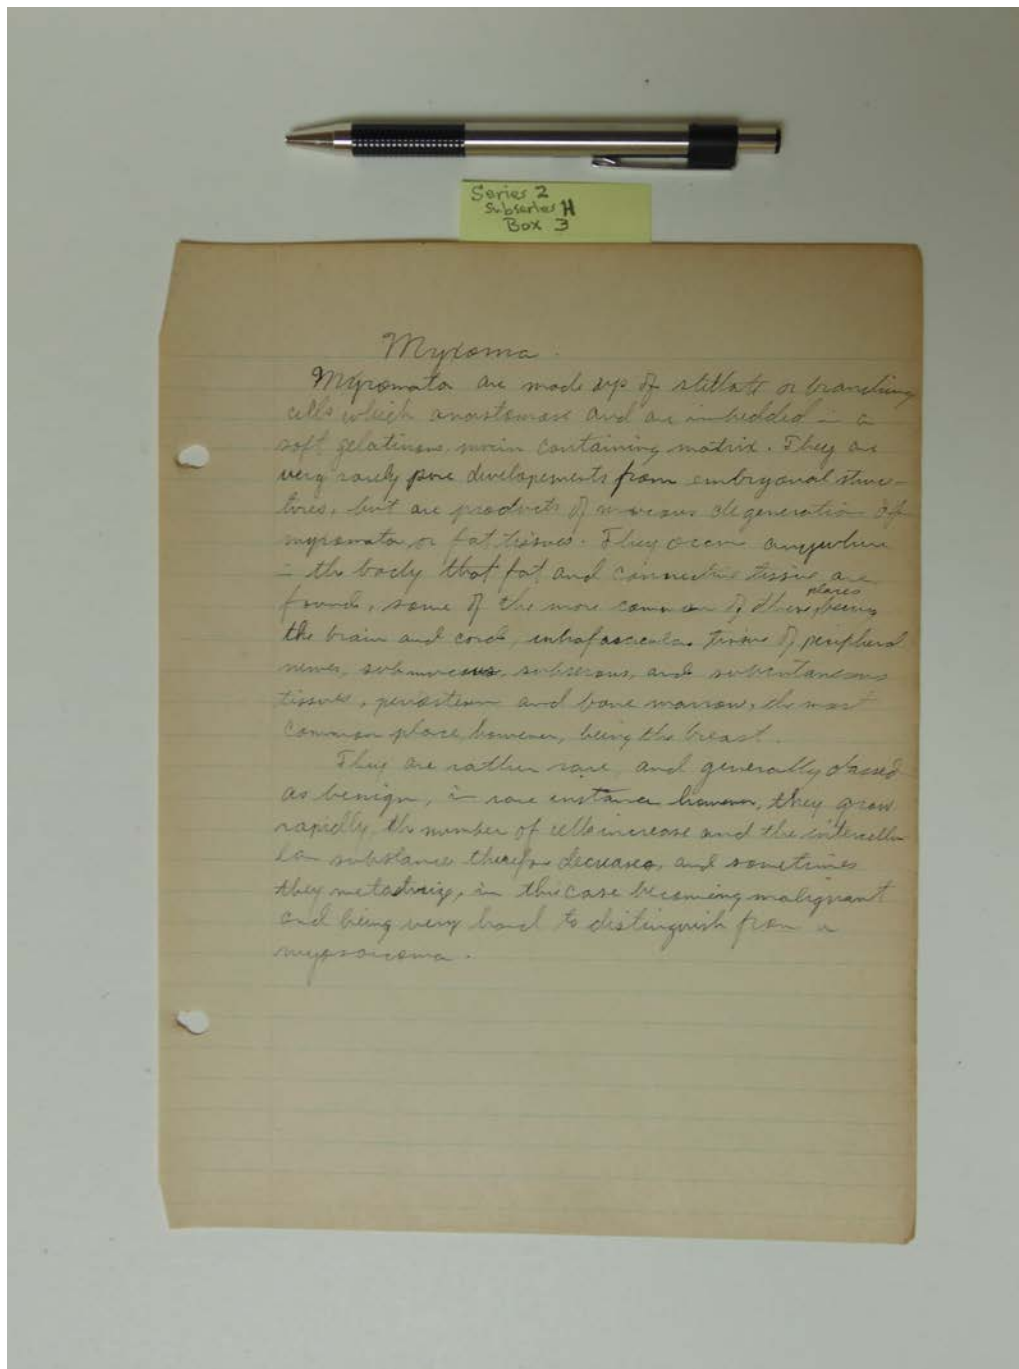 Series 2
Subseries H
Box 3
Myxoma.
Myxomata are made up of stellate or branching
cells which anastomose and are imbedded in a
soft gelatinous, mucin containing matrix. They are
very rarely pure developements from embryonal struc-
tures, but are products of mucous degeneration of
myxomata or fat tissues. They occur anywhere
in the body that fat and connective tissue are
found, some of the more common of these places being
the brain and cord, intrafascicular tissue of peripheral
nerves, submucous, subserous, and subcutaneous
tissues, periosteum and bone marrow, the most
common place, however, being the breast.
They are rather rare, and generally classed
as benign, in rare instance however, they grow
rapidly, the number of cells increase and the intercellu
lar substance therefore decreases, and sometimes
they metastasize, in this case becoming malignant
and being very hard to distinguish from a
myxosarcoma.